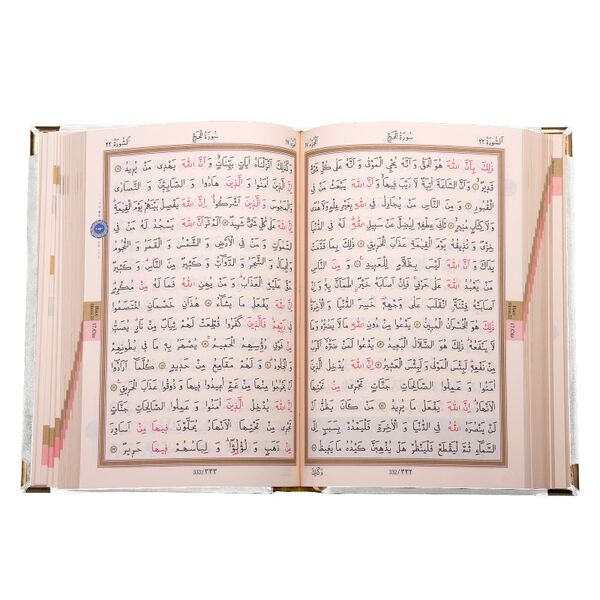 اَلسُّورَةُ ٢٢
سُورَةُ الْحَجِّ
اَلْجُزْءُ ١٧
ذٰلِكَ بِاَنَّ اللّٰهَ هُوَ الْحَقُّ وَاَنَّهُ يُحْيِ الْمَوْتٰى وَاَنَّهُ عَلٰى كُلِّ شَيْءٍ
قَدِيرٌ ۞ وَاَنَّ السَّاعَةَ اٰتِيَةٌ لَا رَيْبَ فِيهَا وَاَنَّ اللّٰهَ يَبْعَثُ مَنْ فِي
الْقُبُورِ ۞ وَمِنَ النَّاسِ مَنْ يُجَادِلُ فِي اللّٰهِ بِغَيْرِ عِلْمٍ وَلَا هُدًى
وَلَا كِتَابٍ مُنِيرٍ ۞ ثَانِيَ عِطْفِهِ لِيُضِلَّ عَنْ سَبِيلِ اللّٰهِ لَهُ فِي الدُّنْيَا
خِزْيٌ وَنُذِيقُهُ يَوْمَ الْقِيٰمَةِ عَذَابَ الْحَرِيقِ ۞ ذٰلِكَ بِمَا قَدَّمَتْ
يَدَاكَ وَاَنَّ اللّٰهَ لَيْسَ بِظَلَّامٍ لِلْعَبِيدِ ۞ وَمِنَ النَّاسِ
مَنْ يَعْبُدُ اللّٰهَ عَلٰى حَرْفٍ فَاِنْ اَصَابَهُ خَيْرٌ اطْمَاَنَّ بِهِ وَاِنْ
اَصَابَتْهُ فِتْنَةٌ انْقَلَبَ عَلٰى وَجْهِهِ خَسِرَ الدُّنْيَا وَالْاٰخِرَةَ
ذٰلِكَ هُوَ الْخُسْرَانُ الْمُبِينُ ۞ يَدْعُوا مِنْ دُونِ اللّٰهِ مَا لَا يَضُرُّهُ وَمَا
لَا يَنْفَعُهُ ذٰلِكَ هُوَ الضَّلَالُ الْبَعِيدُ ۞ يَدْعُوا لَمَنْ ضَرُّهُ اَقْرَبُ
مِنْ نَفْعِهِ لَبِئْسَ الْمَوْلٰى وَلَبِئْسَ الْعَشِيرُ ۞ اِنَّ اللّٰهَ يُدْخِلُ الَّذِينَ
اٰمَنُوا وَعَمِلُوا الصَّالِحَاتِ جَنَّاتٍ تَجْرِي مِنْ تَحْتِهَا
الْاَنْهَارُ اِنَّ اللّٰهَ يَفْعَلُ مَا يُرِيدُ ۞ مَنْ كَانَ يَظُنُّ اَنْ
لَنْ يَنْصُرَهُ اللّٰهُ فِي الدُّنْيَا وَالْاٰخِرَةِ فَلْيَمْدُدْ بِسَبَبٍ اِلَى
السَّمَاءِ ثُمَّ لْيَقْطَعْ فَلْيَنْظُرْ هَلْ يُذْهِبَنَّ كَيْدُهُ مَا يَغِيظُ ۞
332/٣٣٢
وَكَذٰلِكَ
17.Cüz
سُورَةُ الْحَجِّ
اَلسُّورَةُ ٢٢
وَكَذٰلِكَ اَنْزَلْنَاهُ اٰيَاتٍ بَيِّنَاتٍ وَاَنَّ اللّٰهَ يَهْدِي مَنْ يُرِيدُ ۞
اِنَّ الَّذِينَ اٰمَنُوا وَالَّذِينَ هَادُوا وَالصَّابِئِينَ وَالنَّصَارٰى
وَالْمَجُوسَ وَالَّذِينَ اَشْرَكُوا اِنَّ اللّٰهَ يَفْصِلُ بَيْنَهُمْ يَوْمَ الْقِيٰمَةِ
اِنَّ اللّٰهَ عَلٰى كُلِّ شَيْءٍ شَهِيدٌ ۞ اَلَمْ تَرَ اَنَّ اللّٰهَ يَسْجُدُ لَهُ مَنْ فِي
السَّمٰوَاتِ وَمَنْ فِي الْاَرْضِ وَالشَّمْسُ وَالْقَمَرُ وَالنُّجُومُ
وَالْجِبَالُ وَالشَّجَرُ وَالدَّوَابُّ وَكَثِيرٌ مِنَ النَّاسِ وَكَثِيرٌ
حَقَّ عَلَيْهِ الْعَذَابُ وَمَنْ يُهِنِ اللّٰهُ فَمَا لَهُ مِنْ مُكْرِمٍ
اِنَّ اللّٰهَ يَفْعَلُ مَا يَشَاءُ ۞ هٰذَانِ خَصْمَانِ اخْتَصَمُوا
فِي رَبِّهِمْ فَالَّذِينَ كَفَرُوا قُطِّعَتْ لَهُمْ ثِيَابٌ مِنْ نَارٍ يُصَبُّ
مِنْ فَوْقِ رُؤُسِهِمُ الْحَمِيمُ ۞ يُصْهَرُ بِهِ مَا فِي بُطُونِهِمْ
وَالْجُلُودُ ۞ وَلَهُمْ مَقَامِعُ مِنْ حَدِيدٍ ۞ كُلَّمَا اَرَادُوا
اَنْ يَخْرُجُوا مِنْهَا مِنْ غَمٍّ اُعِيدُوا فِيهَا وَذُوقُوا عَذَابَ الْحَرِيقِ ۞
اِنَّ اللّٰهَ يُدْخِلُ الَّذِينَ اٰمَنُوا وَعَمِلُوا الصَّالِحَاتِ جَنَّاتٍ
تَجْرِي مِنْ تَحْتِهَا الْاَنْهَارُ يُحَلَّوْنَ فِيهَا مِنْ اَسَاوِرَ
مِنْ ذَهَبٍ وَلُؤْلُؤًا وَلِبَاسُهُمْ فِيهَا حَرِيرٌ ۞
333/٣٣٣
17.Cüz